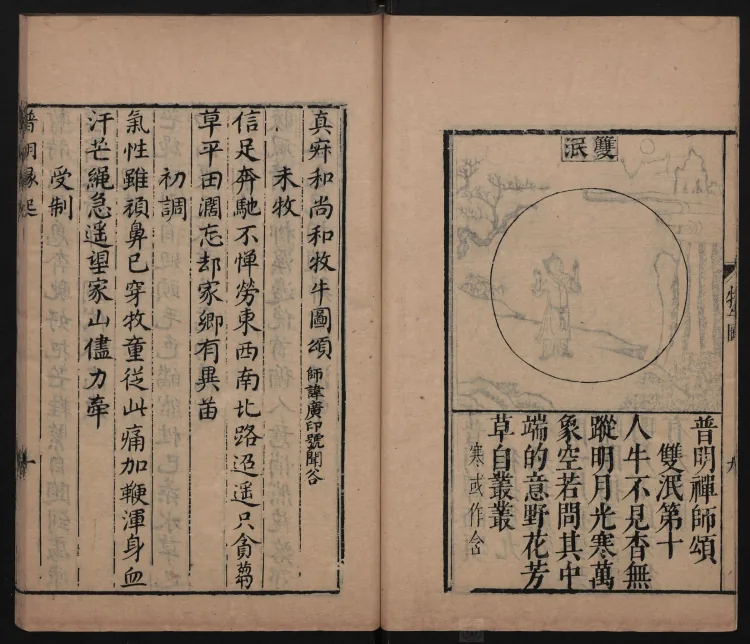 雙泯
普明禪師頌
雙泯第十
人牛不見杳無
蹤明月光寒萬
象空若問其中
端的意野花芳
草自叢叢
寒或作含
牧牛圖
九
真寂和尚和牧牛圖頌 師諱廣印號聞谷
未牧
信足奔馳不憚勞東西南北路迢遥只貪蒭
草平田濶忘却家鄉有異苗
初調
氣性雖頑鼻已穿牧童從此痛加鞭渾身血
汗芒繩急遥望家山儘力牽
受制
普明緣起
一